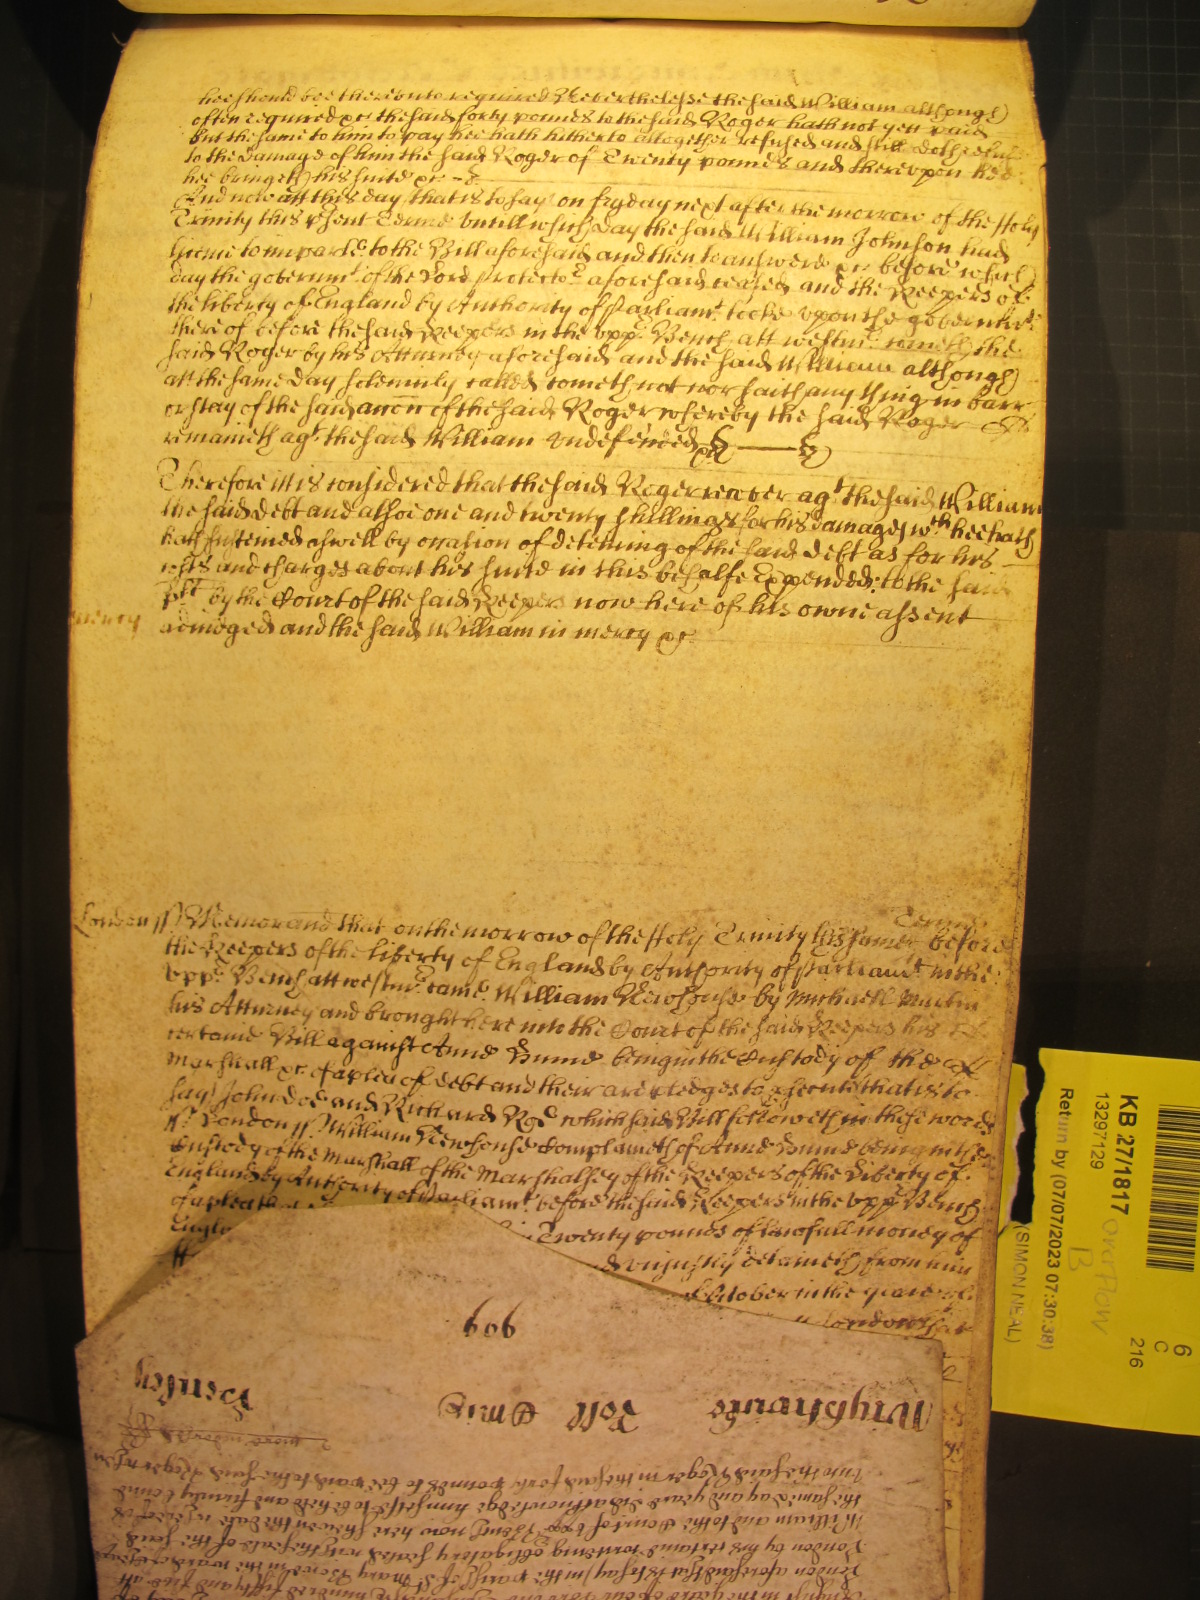 hee should bee thereunto required Neverthelesse the said William although
often required &c the said forty pounds to the said Roger hath not yett paid
But the same to him to pay hee hath hitherto altogether refused and still doth refuse
to the damage of him the said Roger of Twenty pounds and thereupon hee
hee bringeth his suite &c
And now att this day that is to say on fryday next after the morrow of the Holy
Trinity this p'sent Terme untill which day the said William Johnson had
lycence to imparle to the Bill aforesaid and then to answere &c before which
day the governmt. of the Lord Protector aforesaid ceased and the Keepers of
the liberty of England by Authority of Parliamt. tooke upon the governmt.
thereof before the said Keepers in the upp. Bench att westmr. cometh the
said Roger by his Attorney aforesaid and the said William although
att the same day solemnly called cometh not nor saith any thing in barr
or stay of the said accon of the said Roger whereby the said Roger
remaineth agt. the said William undefended &c
Therefore itt is considered that the said Roger recover agt the said William
the said debt and alsoe one and twenty shillings for his damages wch hee hath
hath susteined aswell by occasion of deteining of the said debt as for his
costs and charges about his suite in this behalfe Expended: to the said
Plt by the Court of the said Keepers now here of his owne assent
mercy
adiudged and the said William in mercy &c
Terme
London ss Memorand that on the morrow of the Holy Trinity this same before
the Keepers of the liberty of England by Authority of Parliamt. in the
upp. Bench att westmr. came William Newhouse by Michaell Martin
his Attorney and brought here into the Court of the said Keepers his
certaine Bill against Anne Bunne being in the Custody of the
Marshall &c of a plea of debt and their are pledges to p'secute that is to
say John Doe and Richard Roe which said Bill followeth in these words
ss. London ss. William Newhouse Complaineth of Anne Bunne being in the
Custody of the Marshall of the Marshalsey of the Keepers of the Liberty of
England by Authority of Parliamt. before the said Keepers in the upp Bench
of a plea that Twenty pounds of lawfull money of
Engla
unjustly detaineth from him
October in the yeare
London that
609
Wightwick Roll Trin
more indors
unto the said Roger in the said forty pounds to bee paid to the said Roger when
the same day and yeare did acknowledge himselfe to be held and firmly bound
William and to the Court of upp. Bench now here shewen the date whereof is
London by his certaine writeing obligatory sealed with the seale of the said
London aforesaid that is to say in the parish of St Mary Bow in the ward of Cheape
hundred fifty and five att
KB 27/1817
13297129
Return by (07/07/2023 07:30:38)
(SIMON NEAL)
overflow
B
6
C
216